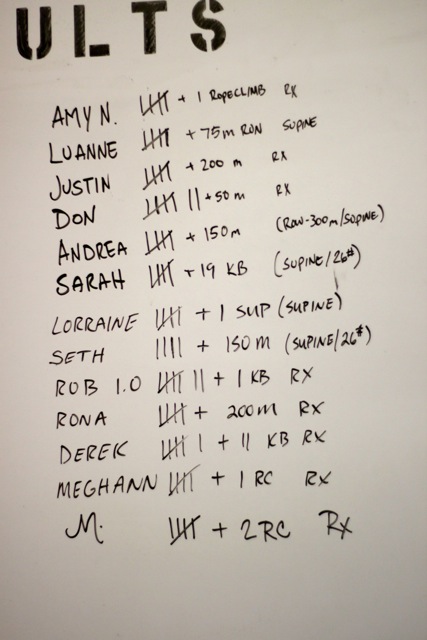 ULTS
AMY N. 卌 + 1 ROPECLIMB RX
LUANNE 卌 + 75m RUN SUPINE
JUSTIN 卌 + 200 m RX
DON 卌 || + 50m RX
ANDREA 卌 + 150m (ROW-300m/SUPINE)
SARAH 卌 + 19 KB (SUPINE/26#)
LORRAINE 卌 + 1 SUP (SUPINE)
SETH |||| + 150 m (SUPINE/26#)
ROB 1.0 卌 || + 1 KB RX
RONA 卌 + 200m RX
DEREK 卌 | + 11 KB RX
MEGHANN 卌 + 1 RC RX
M. 卌 + 2 RC Rx